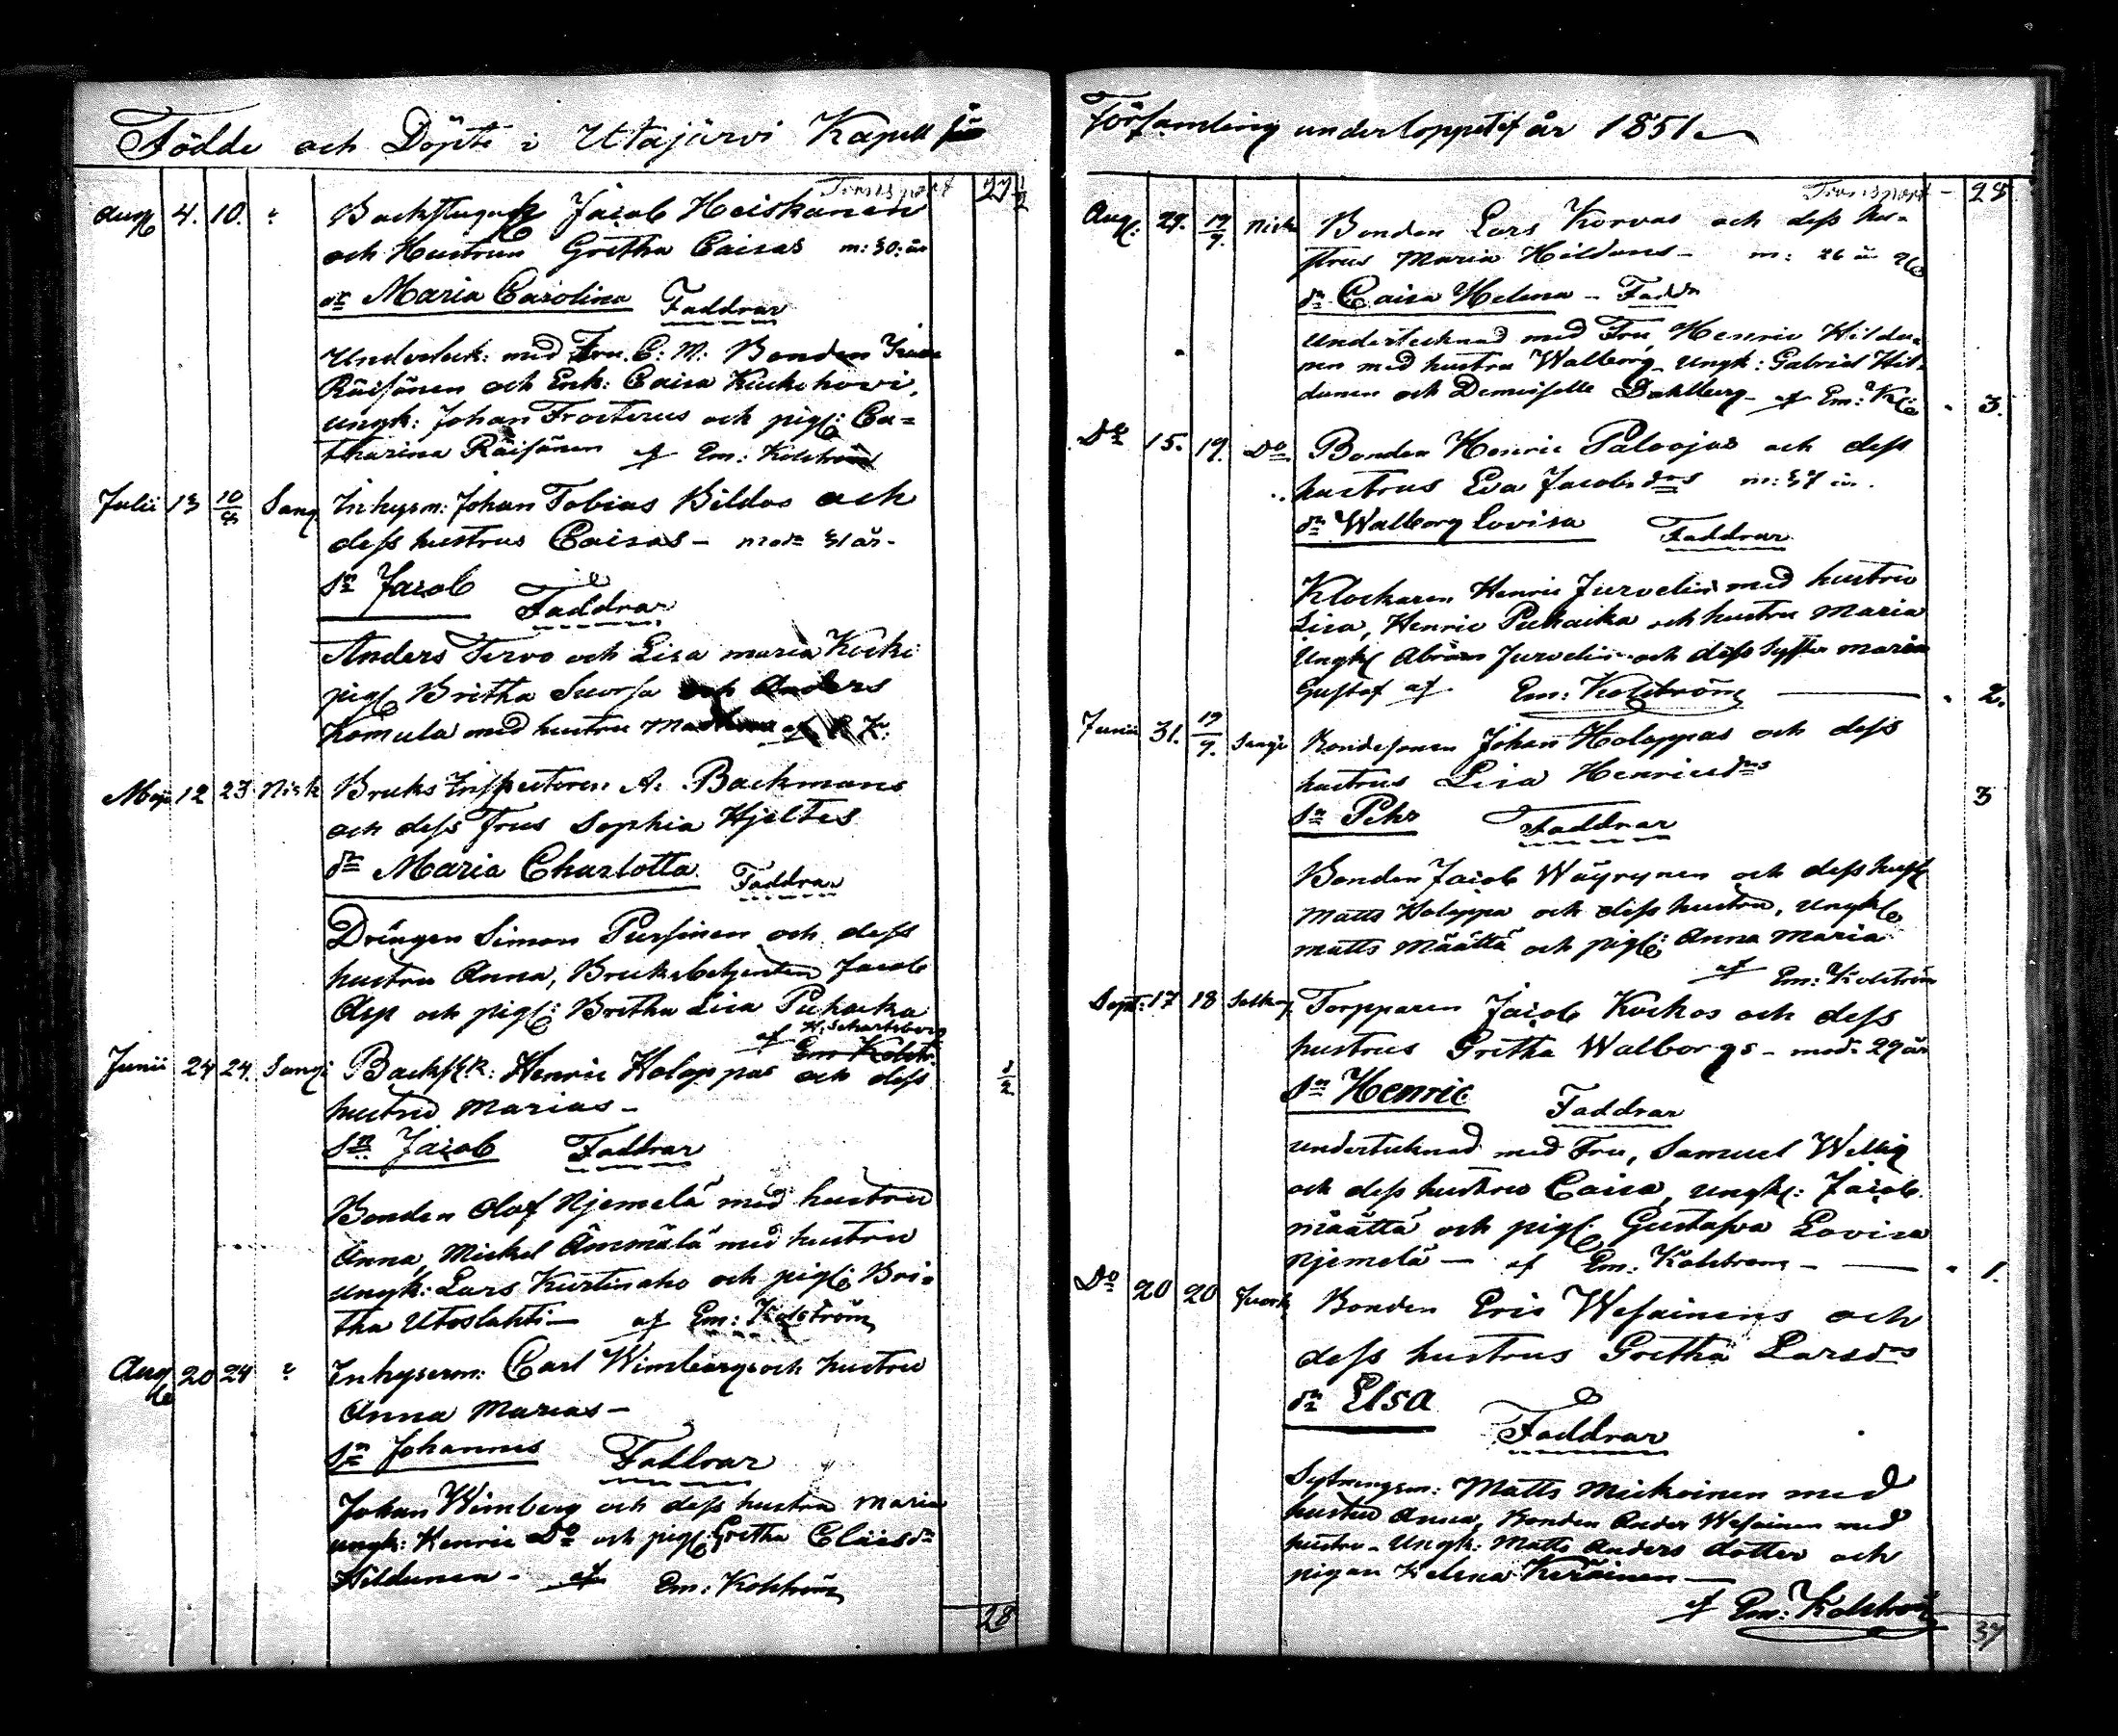 Födde och Döpte i Utajärvi Kapell för
Transport 27 1/2
Augs 4. 10. " Backstugusk Jacob Heiskanen
och Hustrun Gretha Caisas m: 30: år
dr Maria Carolina Faddrar
Underteck: med Fru C: M: Bonden
Räisänen och Enk: Caisa
ungk: Johan Frosterus och pig: Ca=
tharina Räisänen af Em: Kolström
Julii 13 10/8 Sang Inhysm: Johan Tobias Bildas och
dess hustrus Caisas - mod 31 år -
Sn Jacob Faddrar
Anders Tervo och Lisa maria Kocki
pig Britha Suorsa och Anders
Komula med hustru
Maji 12 23 Nisk Bruks Inspectoren A. Backmans
och dess Frus Sophia Hjeltes
dr Maria Charlotta Faddrar
Drängen Simon Pursinen och dess
hustru Anna, Bruksbetjenten Jacob
Asp och pig: Britha Lisa Puhacka
af
Em Kolstr.
Junii 24 24. Sangi Backstk: Henric Holappas och dess 1/2
hustru Marias -
Sn Jacob Faddrar
Bonden Olof Njemelä med hustru
Anna, Mickel Ämmälä med hustru
ungk: Lars Kurtinaho och pig: Bri=
tha Utoslahti - af Em: Kolström
Aug 20 24 " Inhyserm: Carl Wimbergs och hustru
Anna Marias -
Sn Johannes Faddrar
Johan Wimberg och dess hustru Maria
ungk: Henric Do och pig: Gretha Cläesdr
Hildunen - af Em: Kolström
28
Församling under loppet af år 1851.
Transport - 28
Aug: 29. 19/9. Nisk Bonden Lars Korvas och dess hu-
strus Maria Hildans - m: 26 år
dr Caisa Helena - Fadd
undertecknad med Fru, Henric Hildu=
nen med hustru Walborg - ungk: Gabriel Hil=
dunen och Demoiselle Dahlberg - af Em: K: " 3.
Do 15. 19. Do Bonden Henric Paloojas och dess
hustrus Eva Jacobsdrs m: 37 år.
dr Walborg Lovisa Faddrar
Klockaren Henric Jurvelin med hustru
Lisa, Henric Puhacka och hustru Maria
Ungk Abram Jurvelin och dess syster Maria
Gustaf af Em: Kolström " 2.
Junii 31. 19/9. Sangi Bondesonen Johan Holappas och dess
hustrus Lisa Henricsdrs 3
Sn Pehr Faddrar
Bonden Jacob Wäyrynen och dess hust
Matts Holappa och dess hustru, ungk
Matts Määttä och pig: Anna Maria
af Em: Kolström
Sept: 17 18 Torpparen Jacob Kockos och dess
hustrus Gretha Walborgs - mod: 29 år
Sn Henric Faddrar
undertecknad med Fru, Samuel Wellig
och dess hustru Caisa, ungk: Jacob
Määttä och pig: Gustafva Lovisa
Njemelä - af Em: Kolström - " 1.
Do 20 20 Juork Bonden Eris Wesainens och
dess hustrus Gretha Larsdrs
dr Elsa
Faddrar
Sytningsm: Matts Mickoinen med
hustru Anna, Bonden Ander Wesainen med
hustru - Ungk: Matts Anders dotter och
pigan Helena Keräinen -
af Em: Kolström
37